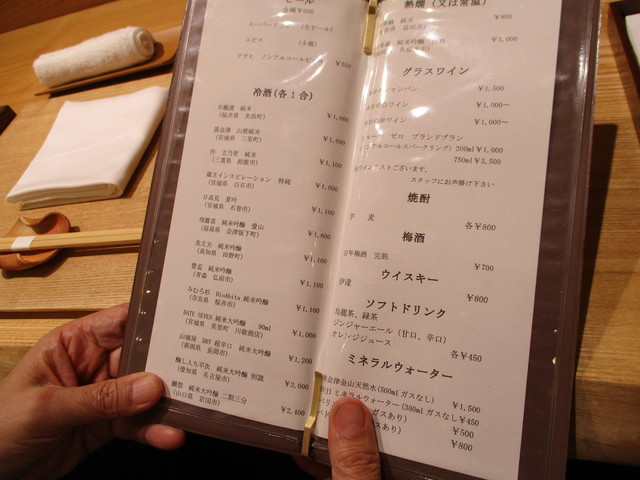 ビール
各種￥600
スーパードライ (生ビール)
ヱビス (小瓶)
アサヒ ノンアルコールビール ￥550
冷酒(各1合)
早瀬浦 純米
(福井県 美浜町)
(宮城県
作 純米
(三重県 鈴鹿市) ￥1,100
蔵王インスピレーション 特純
(宮城県 白石市) ￥1,000
日高見 夏吟
(宮城県 石巻市) ￥1,100
飛露喜 純米吟醸 愛山
(福島県 会津坂下町) ￥1,600
美丈夫 純米吟醸
(高知県 田野町) ￥1,100
豊盃 純米吟醸
(青森 弘前市) ￥1,100
みむろ杉 Dio Abita 純米吟醸
(奈良県 桜井市) ￥1,100
DATE SEVEN 純米大吟醸 90ml
(宮城県 美里町 川敬商店) ￥1,000
山城屋 DRY 超辛口 純米大吟醸
(新潟県 長岡市) ￥1,200
醸し人九平次 純米大吟醸 別誂
(愛知県 名古屋市) ￥2,000
獺祭 純米大吟醸 二割三分
(山口県 岩国市) ￥2,400
熱燗 (又は常温)
純米 ￥800
￥1,000
グラスワイン
シャンパン ￥1,500
白ワイン ￥1,000～
赤ワイン ￥1,000～
ゼロ ブランドブラン
ノンアルコールスパークリング) 200ml￥1,000
750ml￥3,500
ワインリストございます。
スタッフにお声掛け下さい
焼酎
芋 麦
各￥800
梅酒
百年梅酒 完熟 ￥700
ウイスキー
伊達 ￥800
ソフトドリンク
烏龍茶、緑茶
ジンジャーエール (甘口、辛口)
オレンジジュース 各￥450
ミネラルウォーター
会津金山天然水(500ml ガスなし) ￥1,500
ミネラルウォーター (380ml ガスなし) ￥450
ガスあり) ￥500
ガスあり) ￥800